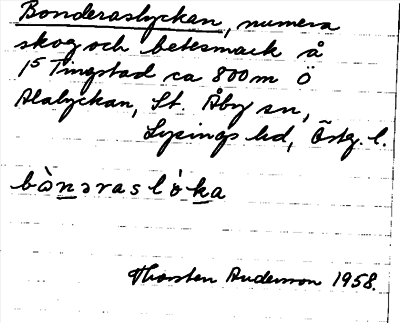 Bonderaslyckan, numera
skog och betesmark å
1⁵ Tingstad ca 800 m Ö
Alalyckan, St. Åby sn,
Lysings hd, Östg. l.
bònəraslòka
Thorsten Andersson 1958.